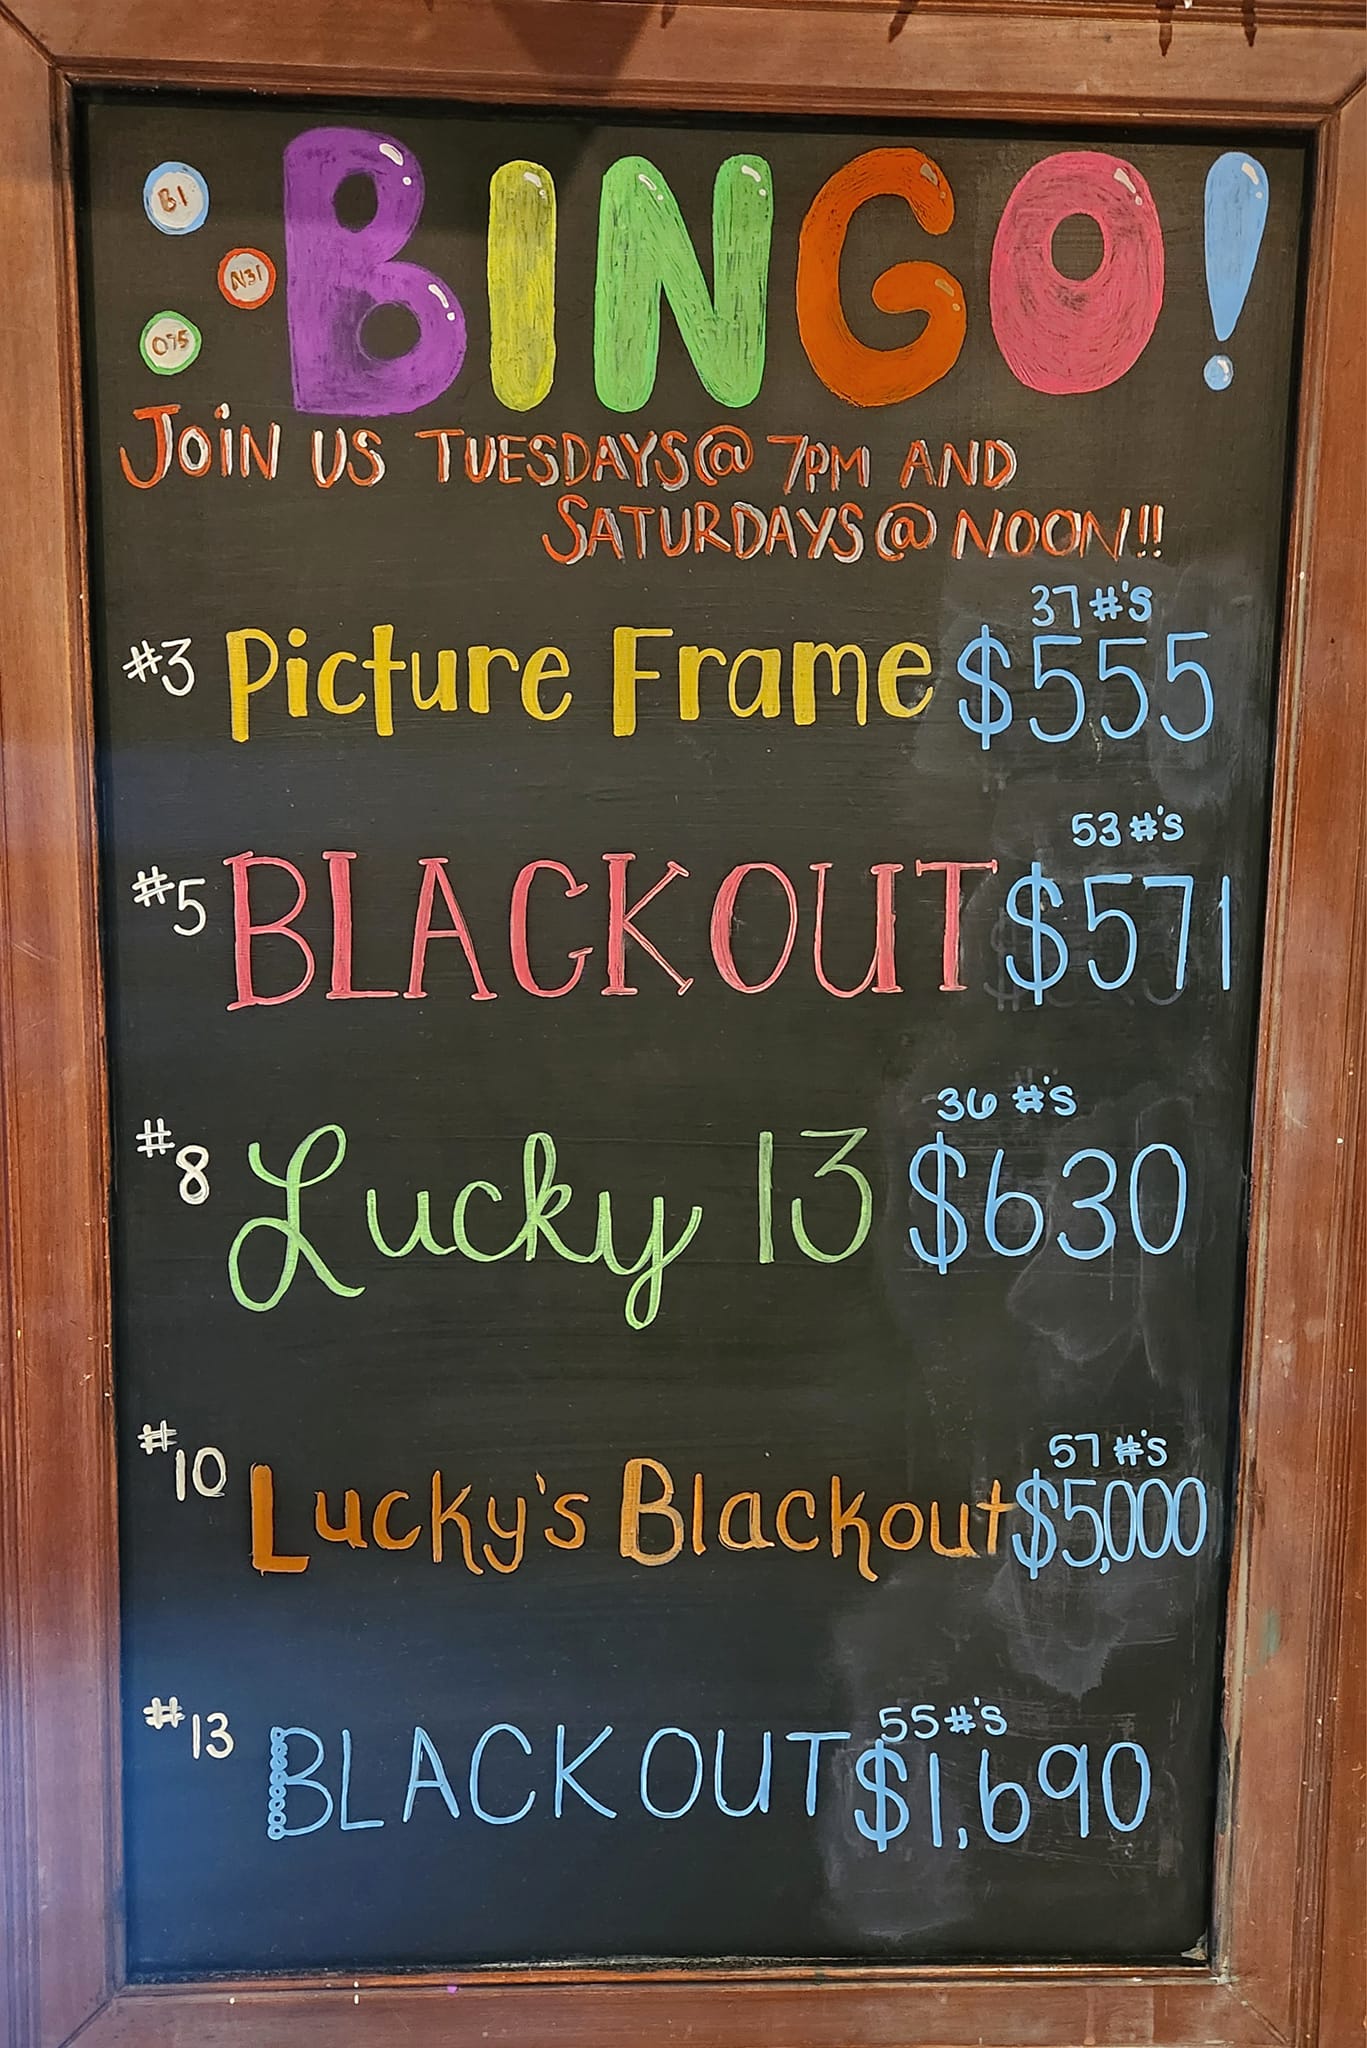 BINGO!
B1
N31
O75
JOIN US TUESDAYS @ 7PM AND
SATURDAYS @ NOON!!
37 #'S
#3 Picture Frame $555
53 #'S
#5 BLACKOUT $571
36 #'S
#8 Lucky 13 $630
57 #'S
#10 Lucky's Blackout $5,000
55 #'S
#13 BLACKOUT $1,690